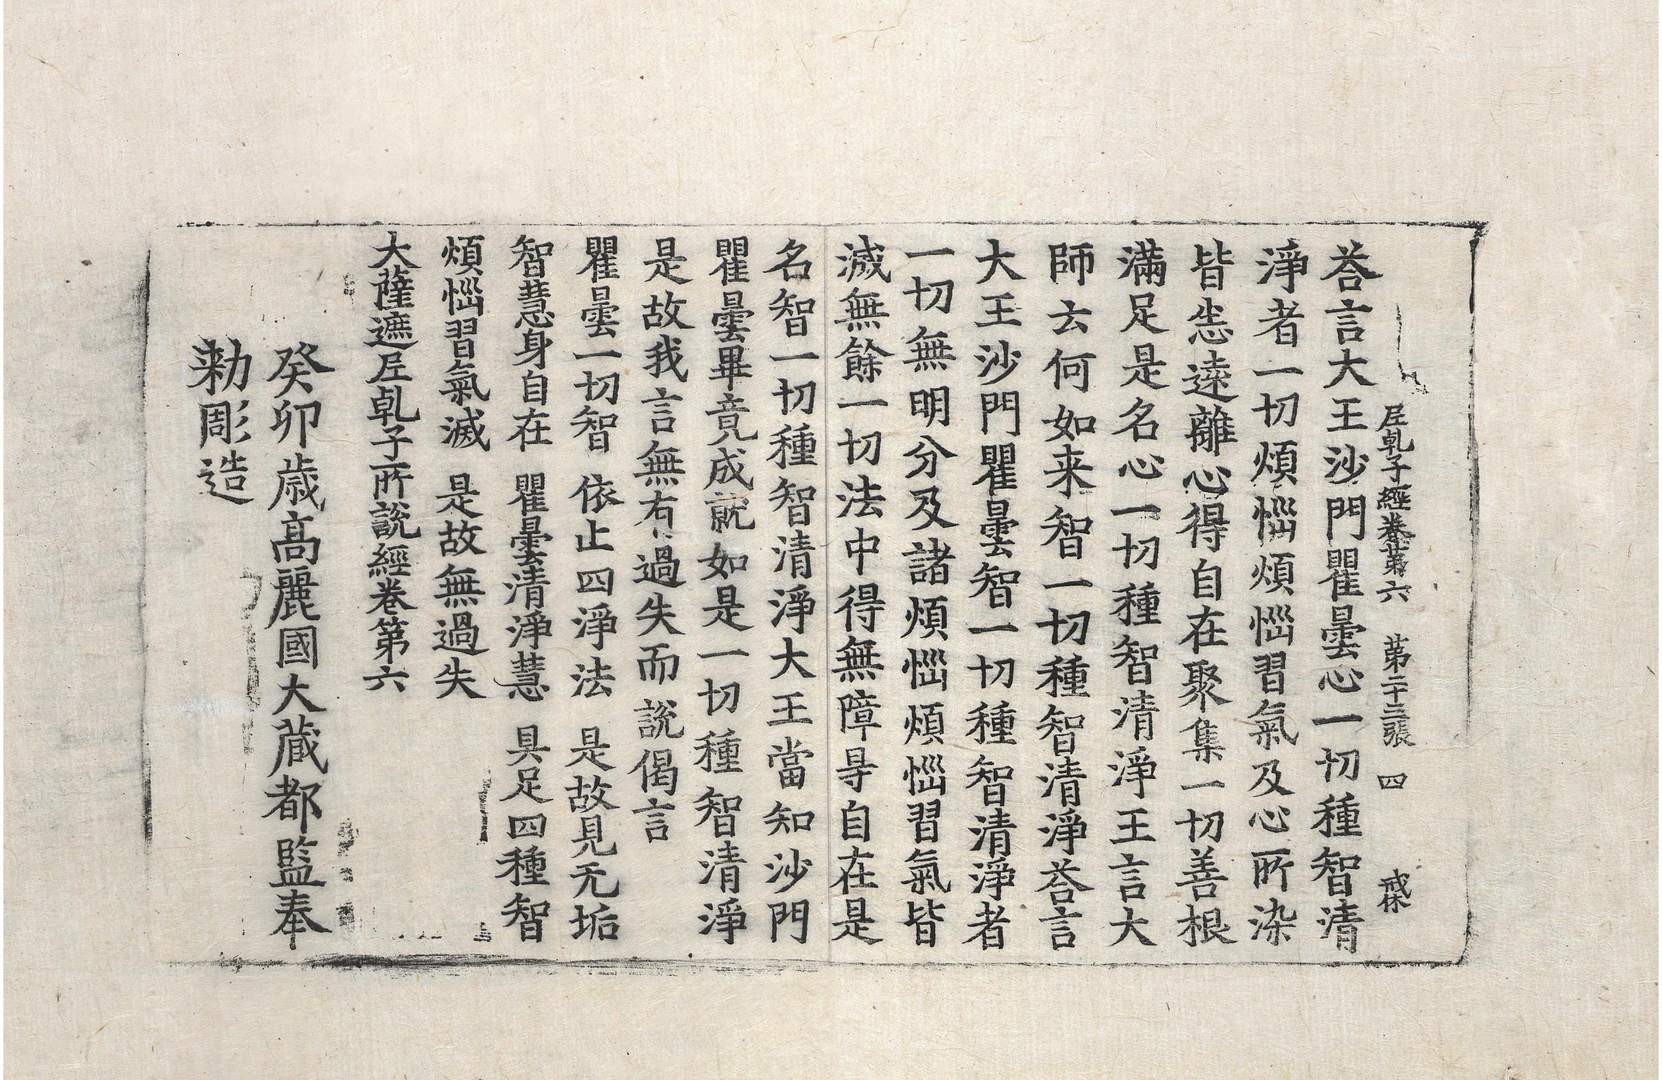 尼乹子經卷第六　第二十三張　四　戒休
荅言大王沙門瞿曇心一切種智清
淨者一切煩惱煩惱習氣及心所染
皆悉遠離心得自在聚集一切善根
滿足是名心一切種智清淨王言大
師云何如来智一切種智清淨荅言
大王沙門瞿曇智一切種智清淨者
一切無明分及諸煩惱煩惱習氣皆
滅無餘一切法中得無障㝵自在是
名智一切種智清淨大王當知沙門
瞿曇畢竟成就如是一切種智清淨
是故我言無有過失而說偈言
瞿曇一切智　依止四淨法　是故見无垢
智慧身自在　瞿曇清淨慧　具足四種智
煩惱習氣滅　是故無過失
大薩遮尼乹子所說經卷第六
癸卯歲高麗國大藏都監奉
勑彫造